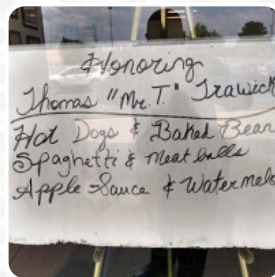 Honoring
Thomas "Mr. T." Trawick
Hot Dogs & Baked Bean
Spaghetti & Meat balls
Apple Sauce & Watermelo